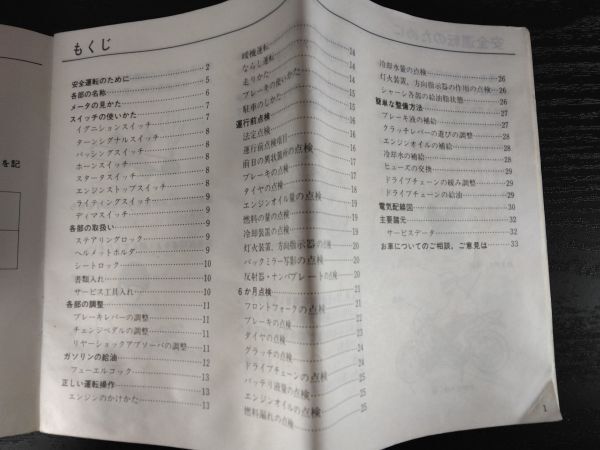 もくじ
安全運転のために 2
各部の名称 5
メータの見かた 6
スイッチの使いかた 7
イグニションスイッチ 7
ターンシグナルスイッチ 8
パッシングスイッチ 8
ホーンスイッチ 8
スタータスイッチ 8
エンジンストップスイッチ 8
ライティングスイッチ 9
ディマスイッチ 9
各部の取扱い 9
ステアリングロック 9
ヘルメットホルダ 9
シートロック 10
書類入れ 10
サービス工具入れ 10
各部の調整 11
ブレーキレバーの調整 11
チェンジペダルの調整 11
リヤーショックアブソーバの調整 11
ガソリンの給油 12
フューエルコック 13
正しい運転操作 13
エンジンのかけかた 13
暖機運転 14
ならし運転 14
走りかた 14
ブレーキの使いかた 15
駐車のしかた 15
運行前点検 16
法定点検 16
運行前点検項目 16
前日の異状箇所の点検 16
ブレーキの点検 17
タイヤの点検 18
エンジンオイル量の点検 19
燃料の量の点検 19
冷却装置の点検 19
灯火装置、方向指示器の点検 20
バックミラー写影の点検 20
反射器・ナンバプレートの点検 20
6か月点検 21
フロントフォークの点検 21
ブレーキの点検 22
タイヤの点検 24
クラッチの点検 24
ドライブチェーンの点検 24
バッテリ液量の点検 25
エンジンオイルの点検 25
燃料漏れの点検 25
冷却水量の点検 26
灯火装置、方向指示器の作用の点検 26
シャーシ各部の給油脂状態 26
簡単な整備方法 27
ブレーキ液の補給 27
クラッチレバーの遊びの調整 28
エンジンオイルの補給 28
冷却水の補給 28
ヒューズの交換 29
ドライブチェーンの緩み調整 29
ドライブチェーンの給油 29
電気配線図 30
主要諸元 32
サービスデータ 32
お車についてのご相談、ご意見は 33
1
を記